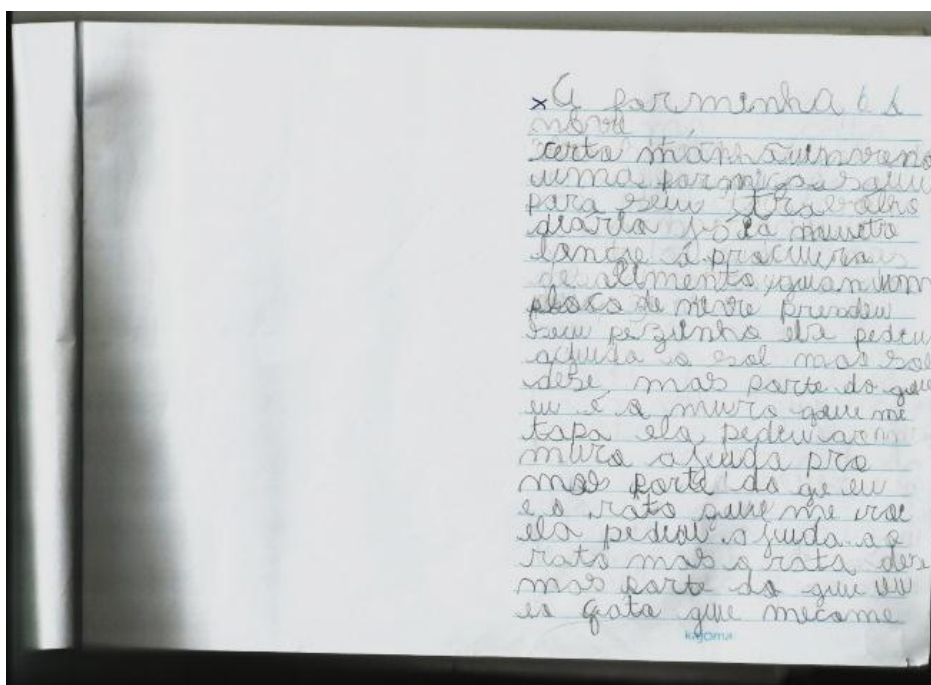 × A forminha e a
neve
certa manhã uinverno
uma formiga saiu
para seu trabalho
diario já ia muito
lonje á procura
de alimento quan um
floco de neve prendeu
seu pezinho ela pediu
ajuda o sol mas sol
dese mas forte do que
eu é o muro que me
tapa ela pediu ao
muro ajuda pro
mas forte do qe eu
é o rato que me roe
ela pediu ajuda ao
rato mas o rato dese
mas forte do que eu
eo gato que mecome
kajoma